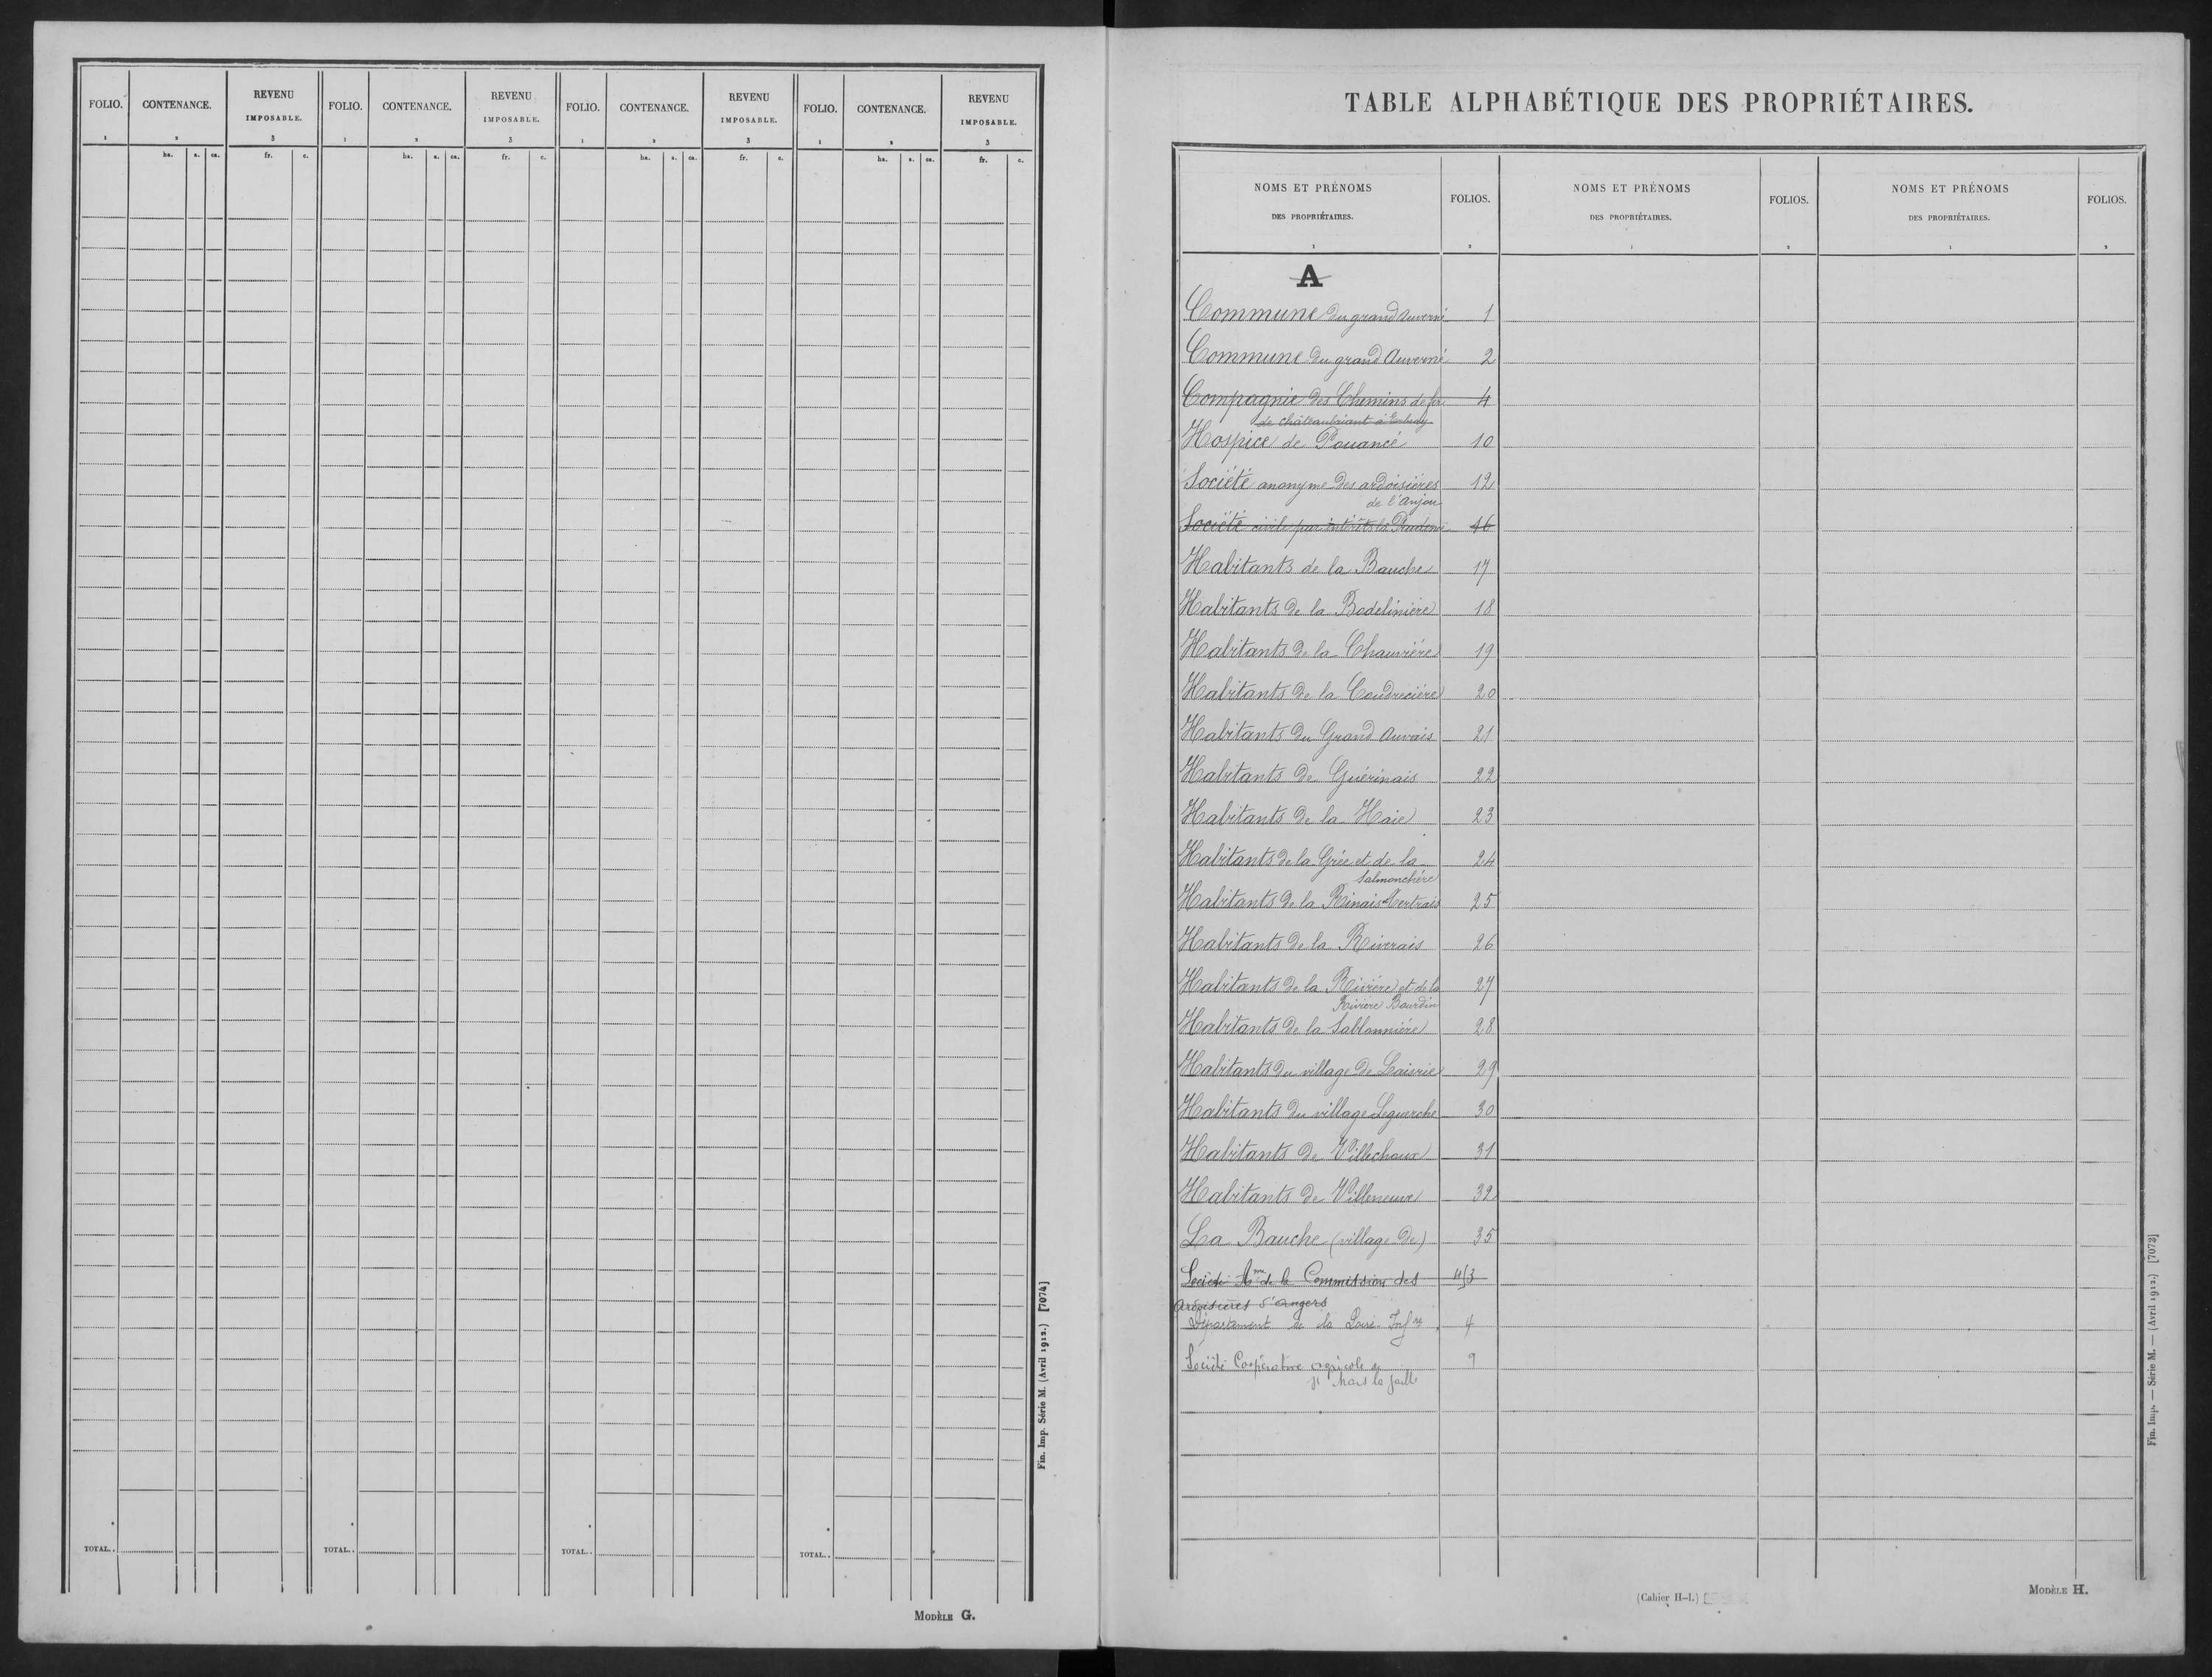 FOLIO. CONTENANCE. REVENU IMPOSABLE. FOLIO. CONTENANCE. REVENU IMPOSABLE. FOLIO. CONTENANCE. REVENU IMPOSABLE. FOLIO. CONTENANCE. REVENU IMPOSABLE.
1 2 3 1 2 3 1 2 3 1 2 3
ha. a. ca. fr. c. ha. a. ca. fr. c. ha. a. ca. fr. c. ha. a. ca. fr. c.
TOTAL.. TOTAL.. TOTAL.. TOTAL..
Fin. Imp. Série M. (Avril 1912.) [7074]
MODÈLE G.
TABLE ALPHABÉTIQUE DES PROPRIÉTAIRES.
NOMS ET PRÉNOMS DES PROPRIÉTAIRES. FOLIOS. NOMS ET PRÉNOMS DES PROPRIÉTAIRES. FOLIOS. NOMS ET PRÉNOMS DES PROPRIÉTAIRES. FOLIOS.
1 2 1 2 1 2
A
Commune du grand Auverné 1
Commune du grand Auverné 2
Compagnie des Chemins de fer 4
de châteaubriant à
Hospice de Pouancé 10
Société anonyme des ardoisières 12
de l'Anjou
Société civile par intérêts la Prudence 16
Habitants de la Bauche 17
Habitants de la Bodelinière 18
Habitants de la Chauvière 19
Habitants de la Coudrecière 20
Habitants du Grand Auvais 21
Habitants de Guérinais 22
Habitants de la Haie 23
Habitants de la Grée et de la 24
Salmonchère
Habitants de la Rinais 25
Habitants de la Riverais 26
Habitants de la Rivière et de la 27
Rivière Bourdin
Habitants de la Sablonnière 28
Habitants du village de Laisrie 29
Habitants du village Leguerche 30
Habitants de Villechoux 31
Habitants de Villeneuve 32
La Bauche (village de) 35
Société Ame de la Commission des 43
Ardoisières d'Angers
Département de la Loire Infre 4
Société Coopérative agricole de 9
St Mars la Jaille
Fin. Imp. — Série M. — (Avril 1912.) [7072]
(Cahier H-I.)
MODÈLE H.